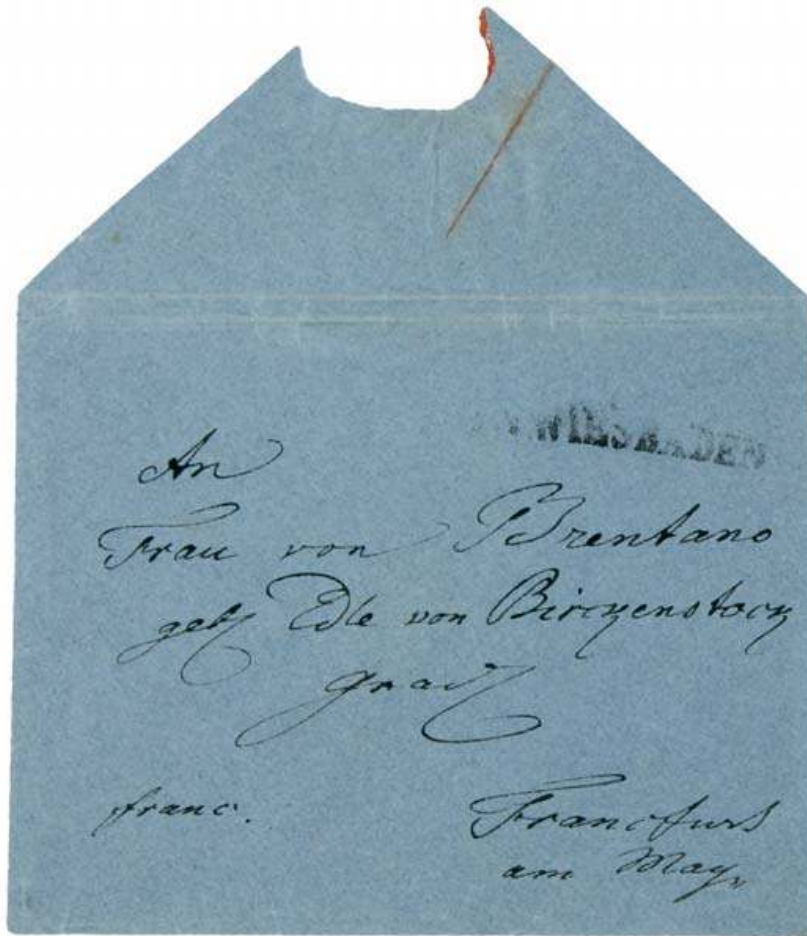 An
Frau von Brentano
geb. Edle von Birckenstock
franc.
Francfurt
am Mayn